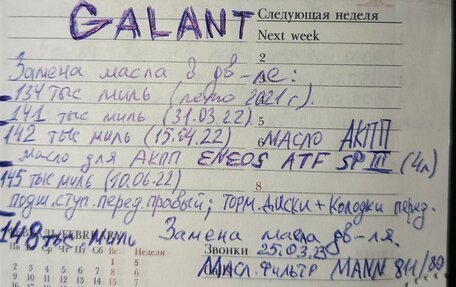 GALANT
Следующая неделя
Next week
2
Замена масла в дв-ле:
134 тыс миль (лето 2021 г).
141 тыс миль (31.03.22)
5
142 тыс миль (15.04.22) МАСЛО АКПП
масло для АКПП ENEOS ATF SP III (4л)
145 тыс миль (10.06.22)
8
подш.ступ.перед.правый; Торм.диски + колодки перед.
148 тыс миль Замена масла дв-ля.
Звонки 25.03.23
Масл.фильтр MANN 811/80
Пн Ср Чт Сб Вс Неделя
1 5
2 3 4 5 6 7 8 6
15 7